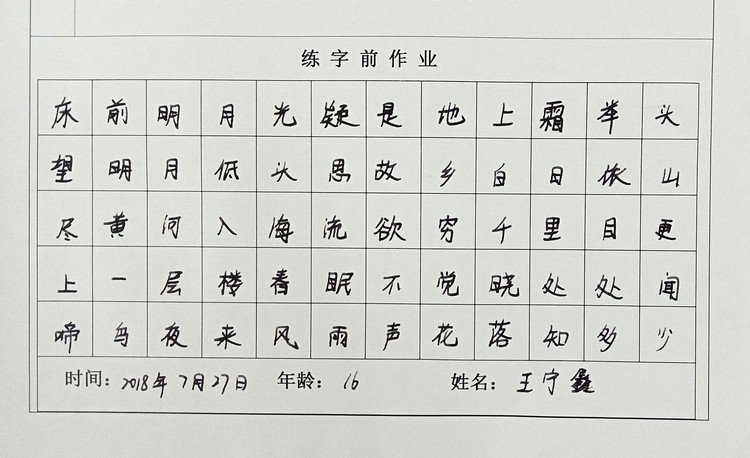 练字前作业
床前明月光疑是地上霜举头
望明月低头思故乡白日依山
尽黄河入海流欲穷千里目更
上一层楼春眠不觉晓处处闻
啼鸟夜来风雨声花落知多少
时间：2018年7月27日 年龄：16 姓名：王宁鑫